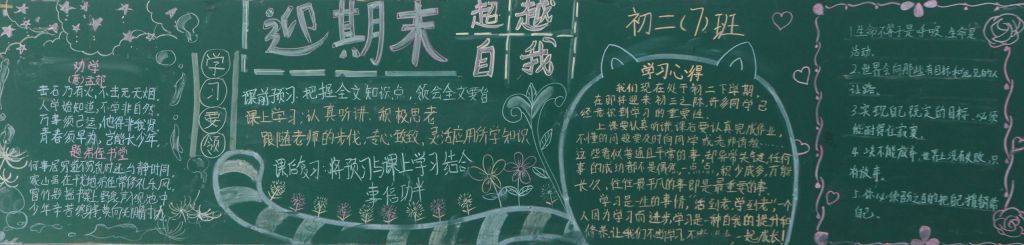 劝学
(唐)孟郊
击石乃有火,不击元无烟。
人学始知道,不学非自然。
万事须己运,他得非我贤。
青春须早为,岂能长少年。
题弟侄书堂
何事居穷道不穷,乱时还与静时同。
家山虽在干戈地,弟侄常修礼乐风。
窗竹影摇书案上,野泉声入砚池中
少年辛苦终身事,莫向光阴惰寸功。
学习要领
迎期末
超越
自我
课前预习:把握全文知识点,领会全文要旨
课上学习:认真听讲,积极思考
跟随老师的步伐,专心致致,灵活应用所学知识
课后练习:将预习与课上学习结合
事倍功半
初二(7)班
学习心得
我们现在处于初二下学期,
在即将迎来初三之际,许多同学已
经意识到学习的重要性:
上课要认真听讲,课后要认真完成作业,
不懂的问题要及时向同学或老师请教……
这些看似普通且平常的事,却异常关键,任何
事的成功都不是偶然,一点一点,积少成多,方能
长久,往往最平凡的事即是最重要的事。
学习是一生的事情,活到老,学到老,一个
人因为学习而进步,学习是一种自我的提升和
修养,让我们不断学习,不断 一起成长!
1.生命不等于是呼吸,生命是
活动。
2.世界会向那些有目标和远见的人
让路。
3.实现自己既定的目标,必须
能耐得住寂寞。
4.决不能放弃,世界上没有失败,只
有放弃。
自己。